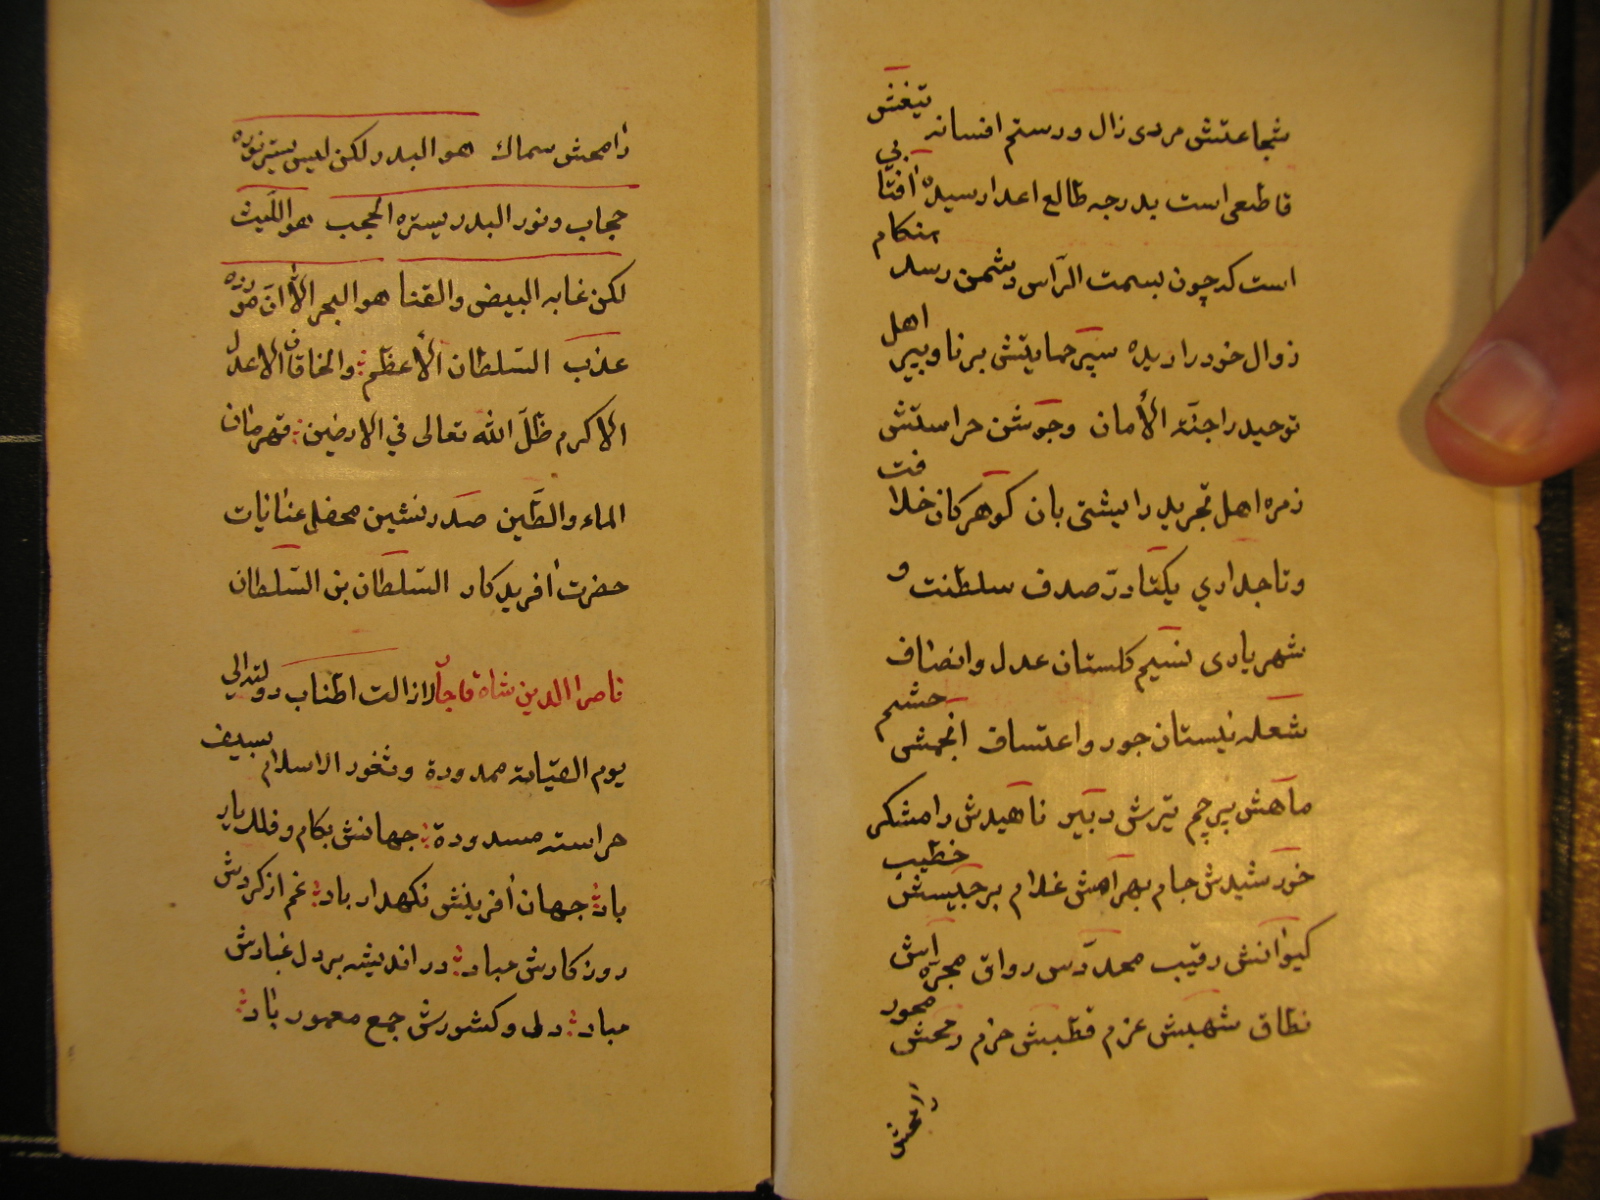 شجاعتش مردی زال و رستم افسانه تیغش
قاطعی است بدرجه طالع اعدا رسیده آفتابی
است که چون بسمت الرّاس دشمن رسد هنکام
زوال خود را دیده سپر حمایتش برنا و پیر اهل
توحید را جنّة الأمان وجوشن حراستش
زمره اهل تجرید را پشتی بان کوهرکان خلافت
و تاجداری یکتا درّ صدف سلطنت و
شهریاری نسیم کلستان عدل وانصاف
شعله نیستان جور و اعتساف انجمشی حشم
ماهش پرچم تیرش دبیر ناهیدش رامشکر
خورشیدش جام بهرامش غلام برجیسش خطیب
کیوانش رقیب محدّدس رواق مجرّه اش
نطاق شهبش عزم قطبش حزم رمحش محور
رامحش
رامحش سماك هو البدر لكن ليس يستر نوره
حجاب ونور البدر يستره الحجب هو اللّيث
لكن غابه البيض والقنا هو البحر الّا انّ موزده
عذب السّلطان الأعظم والخاقان الاعدل
الاكرم ظلّ الله تعالى في الارضين قهرمان
الماء والطّين صدرنشین محفل عنایات
حضرت آفریدکار السّلطان بن السّلطان
ناصر الدین شاه قاجار لا زالت اطناب دولته الی
یوم القیامة ممدودة وثغور الاسلام بسیف
حراسته مسدودة جهانش بکام و فلك یار
باد جهان آفرینش نکهدار باد غم از کردش
روزکارش مباد در اندیشه بر دل غبارش
مباد دل و کشورش جمع معمور باد